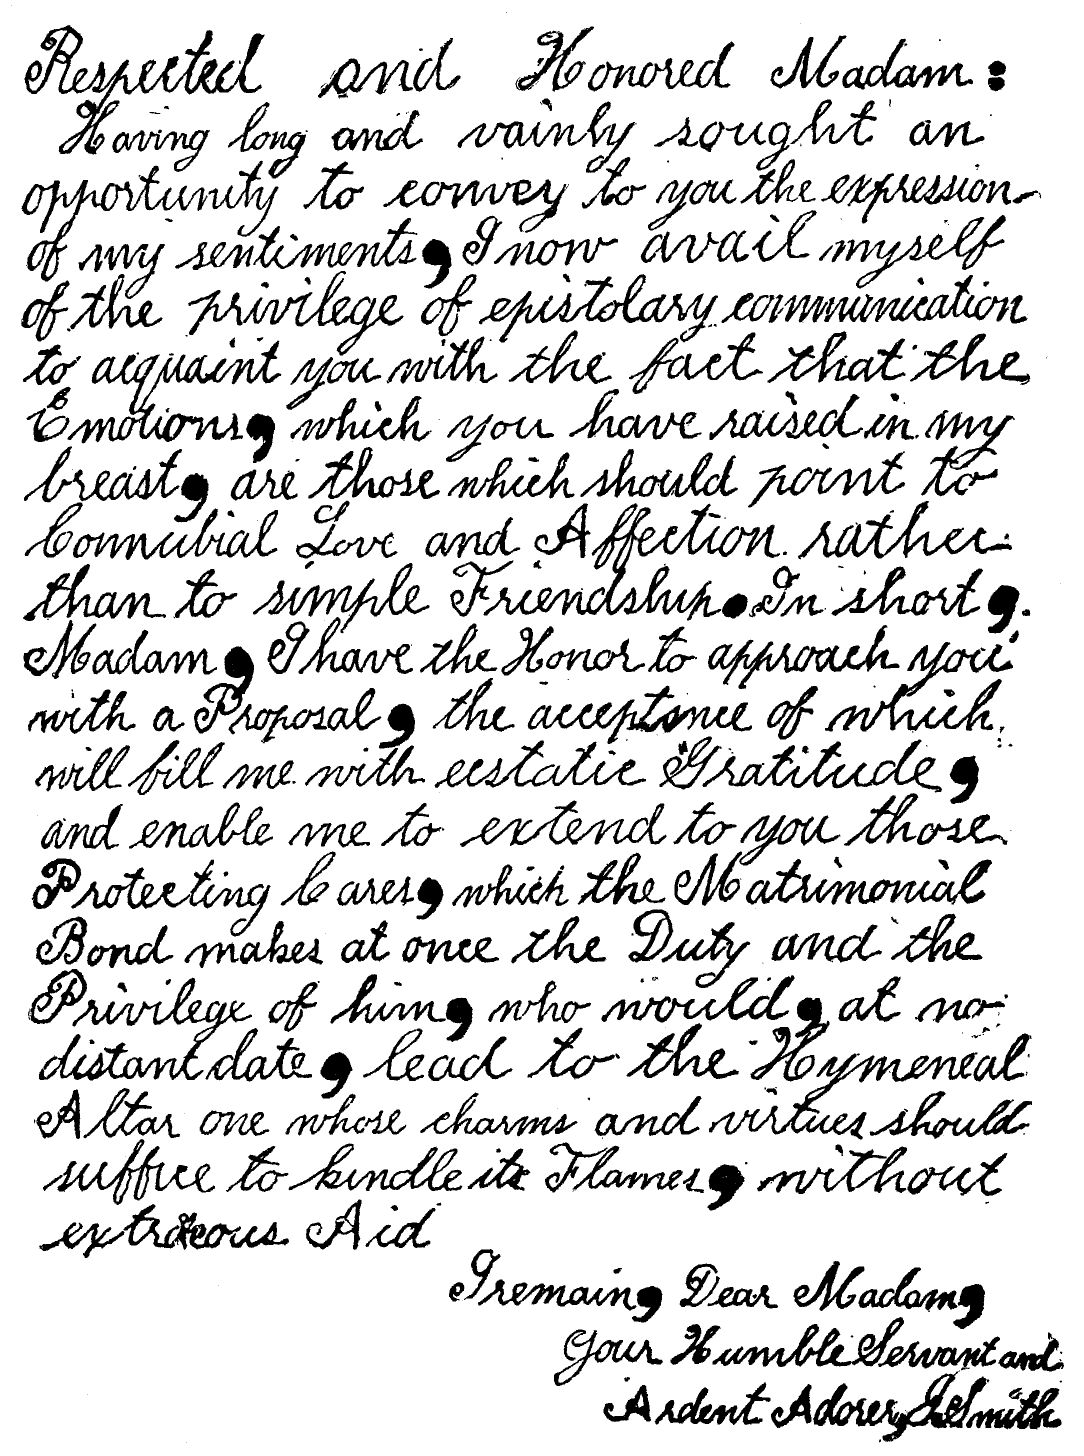 Respected and Honored Madam:
Having long and vainly sought an
opportunity to convey to you the expression
of my sentiments, I now avail myself
of the privilege of epistolary communication
to acquaint you with the fact that the
Emotions, which you have raised in my
breast, are those which should point to
Connubial Love and Affection rather
than to simple Friendship. In short,
Madam, I have the Honor to approach you
with a Proposal, the acceptance of which
will fill me with ecstatic Gratitude,
and enable me to extend to you those
Protecting Cares, which the Matrimonial
Bond makes at once the Duty and the
Privilege of him, who would, at no
distant date, lead to the Hymeneal
Altar one whose charms and virtues should
suffice to kindle its Flames, without
Aid
I remain, Dear Madam,
Your Humble Servant and
Ardent Adorer, J. Smith